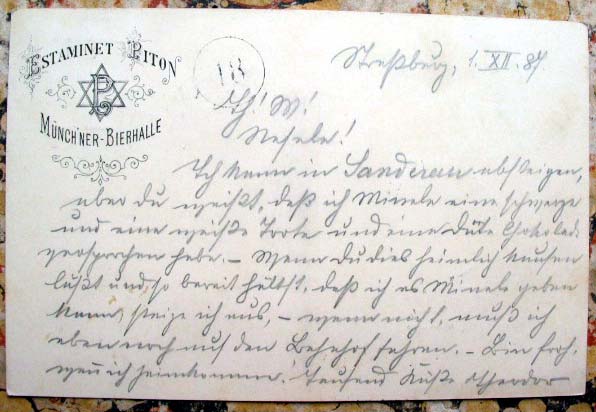 ESTAMINET PITON
MÜNCH'NER-BIERHALLE
118
Straßburg, 1. XII 87.
Th! W!
Nesele!
Ich kann in Sanderau absteigen,
aber du weißt, daß ich Minele eine schwarze
und eine weiße Torte und eine Düte Chokolad
versprochen habe. – Wenn du dies heimlich kaufen
läßt und so bereit hältst, daß ich es Minele geben
kann, steige ich aus, – wenn nicht, muß ich
eben noch auf den Bahnhof fahren. – Bin froh,
wenn ich heimkomme! Tausend Küße Theodor